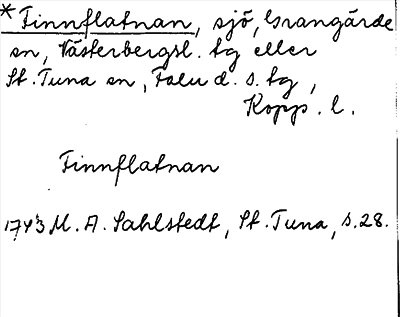 * Finnflatnan, sjö, Grangärde
sn, Västerbergsl. tg eller
St. Tuna sn, Falu d. s. tg,
Kopp. l.
Finnflatnan
1743 M. A. Sahlstedt, St. Tuna, s. 28.